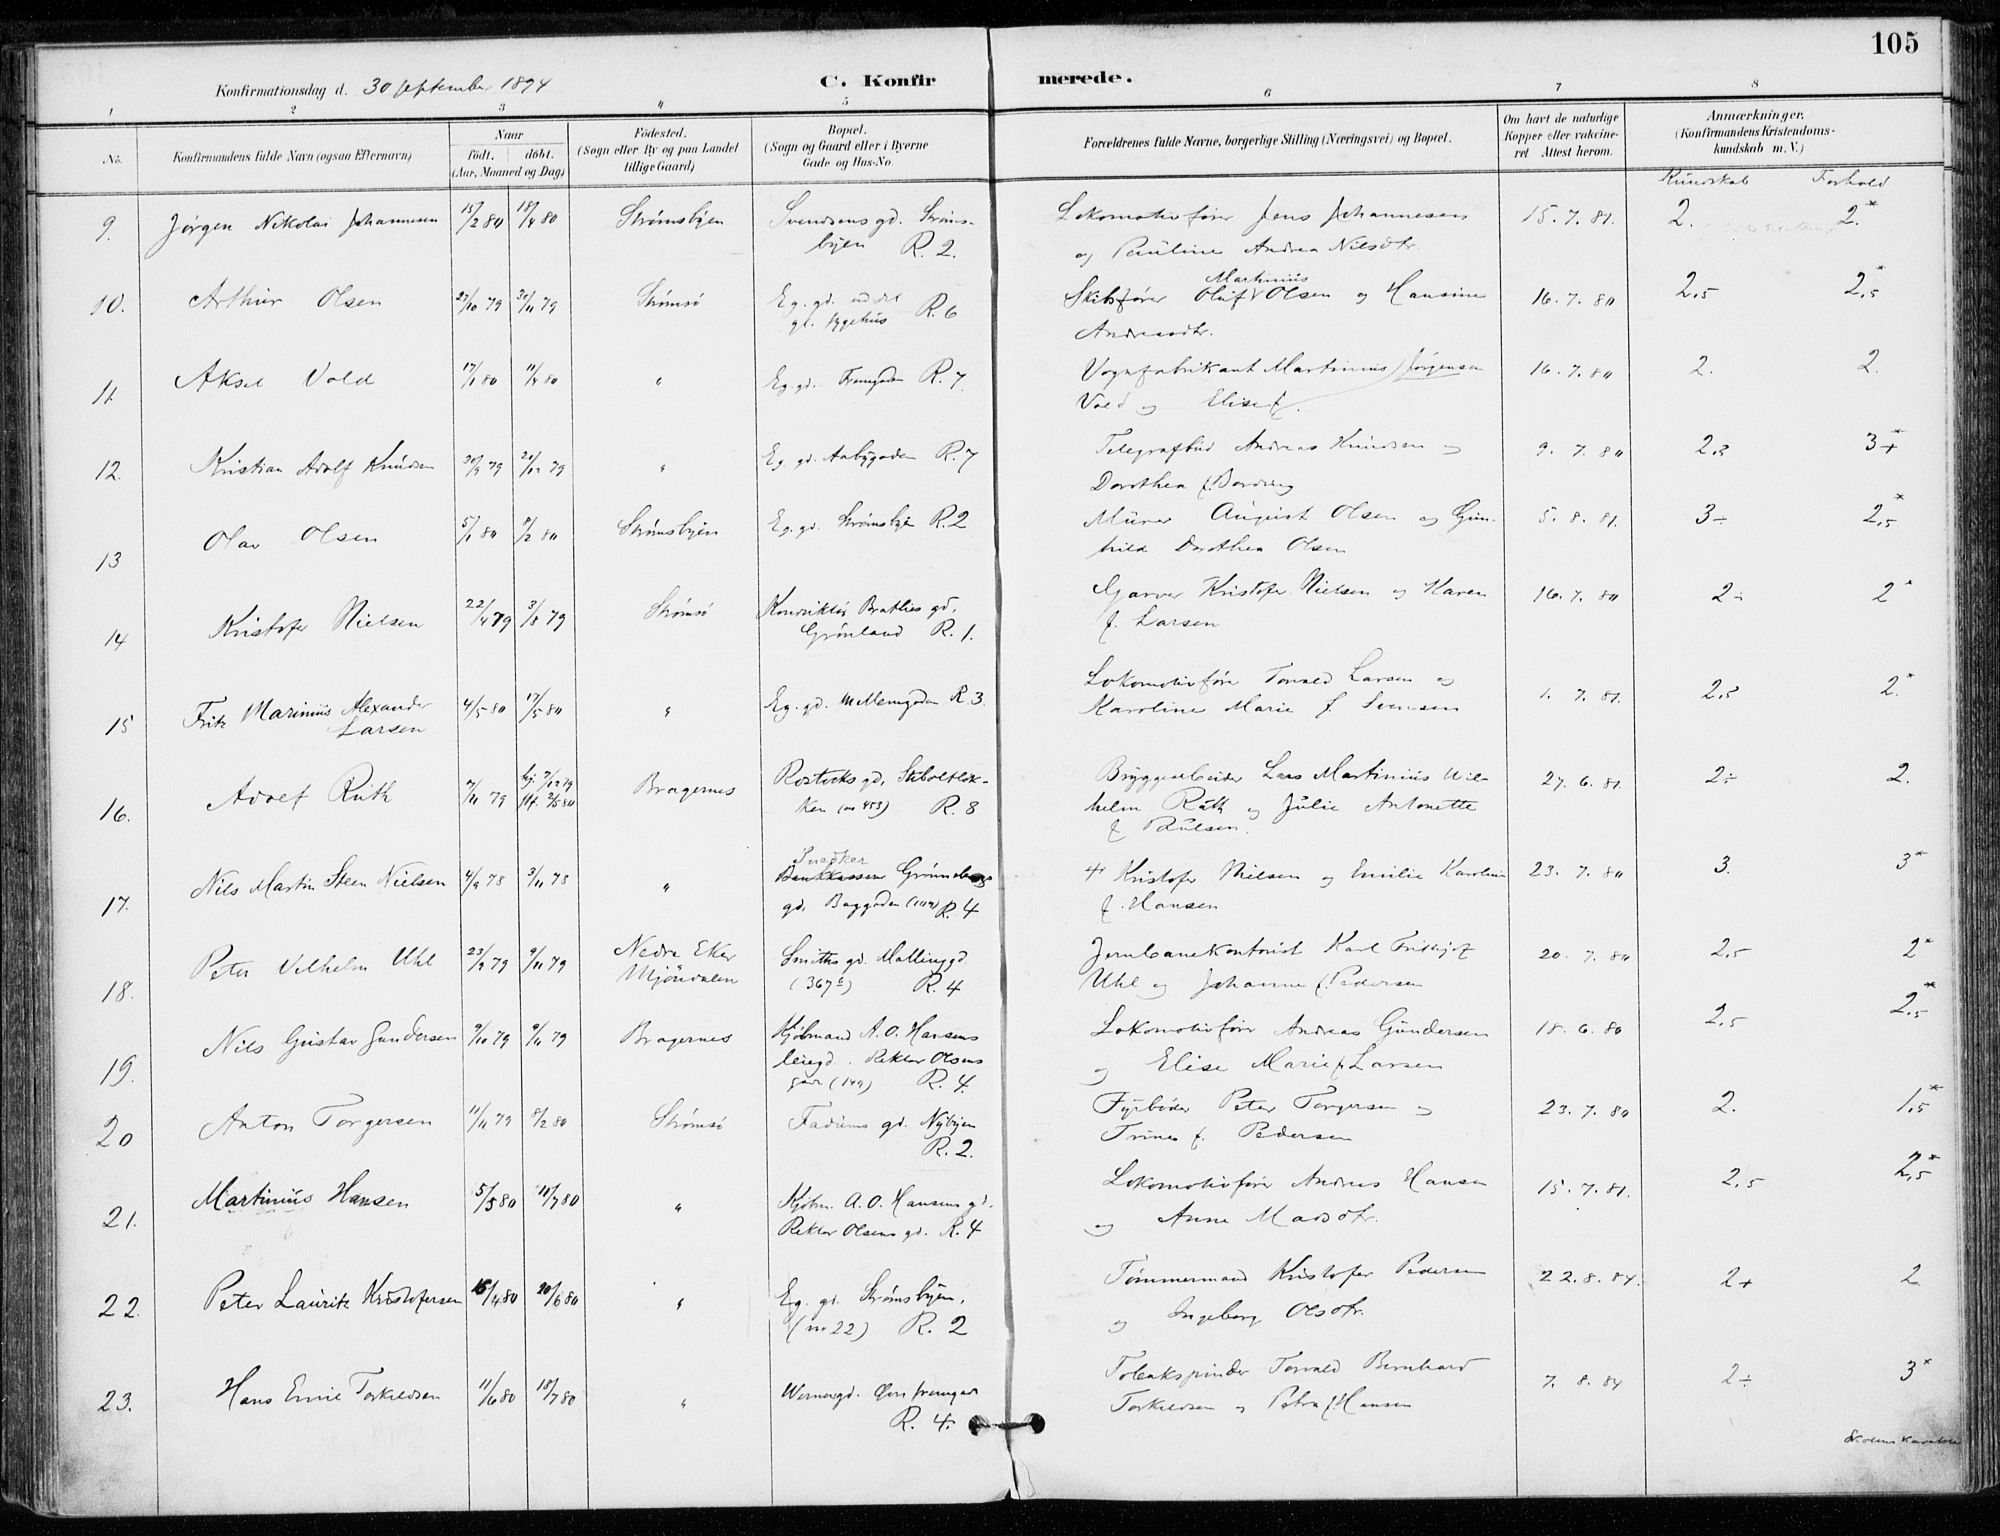 105
Konfirmationsdag d. 30 september 1894
C. Konfirmerede.
1 2 3 4 5 6 7 8
No.
Konfirmandens fulde Navn (ogsaa Efternavn)
Naar
födt. döbt.
(Aar, Maaned og Dag)
Födested.
(Sogn eller By og paa Landet
tillige Gaard)
Bopæl.
(Sogn og Gaard eller i Byerne
Gade og Hus-No.
Forældrenes fulde Navne, borgerlige Stilling (Næringsvei) og Bopæl.
Om havt de naturlige
Kopper eller vakcine-
ret Attest herom.
Anmærkninger.
(Konfirmandens Kristendoms-
kundskab m. V.)
Kundskab Forhold
9. Jørgen Nikolai Johannesen 15/2 80 18/4 80 Strømsbyen Svendsens gd. Strøms- Lokomotivfører Jens Johannesen 15. 7. 81. 2. 2.*
byen R. 2. og Pauline Andrea Nilsdtr.
10. Arthur Olsen 27/10 79 30/11 79 Strømsö Eg. gd. ved det Skibsfører Oluf Martinius Olsen og Hansine 16. 7. 80 2,5 2,5*
gl. sygehus R. 6 Andreasdtr.
11. Aksel Vold 17/1 80 11/4 80 " Eg. gd. Tremgaden R. 7. Vognfabrikant Martinius Jørgensen 16. 7. 80 2. 2.
Vold og Elise f.
12. Kristian Adolf Knudsen 30/9 79 21/12 79 " Eg. gd. Aabygaden R. 7 Telegrafbud Andreas Knudsen og 9. 7. 80 2,3 3+*
Dorothea f.
13 Olav Olsen 5/1 80 8/2 80 Strømsbyen Eg. gd. Strømsbyen R. 2 Murer August Olsen og Gun- 5. 8. 81. 3÷ 2,5*
hild Dorthea Olsen
14 Kristofer Nielsen 22/4 79 3/8 79 Strømsö Konduktør Bratlies gd. Garver Kristofer Nielsen og Karen 16. 7. 80 2÷ 2*
Grønland R. 1. f. Larsen
15 Fritz Marinius Alexander 4/5 80 17/5 80 " Eg. gd. Mellemgaden R. 3. Lokomotivfører Torvald Larsen og 1. 7. 81. 2,3 2.*
Larsen Karoline Marie f. Svensen
16. Adolf Ruth 7/11 79 hj. 7/12 79 Bragernes Rostocks gd, Stiboltsløk- Bryggearbeider Lars Martinius Wil- 27. 6. 81. 2÷ 2.
2/5 80 ken (no 453) R. 8 helm Ruth og Julie Antonette
f Paulsen.
17. Nils Martin Steen Nielsen 4/9 78 3/11 78 " Snedker Grønnebergs † Kristofer Nielsen og Emilie Karoline 23. 7. 80 3. 3*
gd. Baggaden R. 4 f. Hansen
18. Peter Vilhelm Uhl 23/9 79 9/11 79 Nedre Eker Smiths gd. Mallinggd Jernbanekontorist Karl Frithjof 20. 7. 80 2,5 2*
Mjöndalen (367) R. 4 Uhl og Johanne f. Pedersen
19. Nils Gustav Gundersen 9/10 79 9/11 79 Bragernes Kjöbmand A. O. Hansens Lokomotivfører Andreas Gundersen 18. 6. 80 2,5 2,5*
leiegd. Rektor Olsens og Elise Marie f Larsen
gade (149) R. 4.
20 Anton Torgersen 11/11 79 8/2 80 Strømsö Fadums gd. Nybyen Fyrbøder Peter Torgersen og 23. 7. 80 2. 1,5*
R. 2. Trine f. Pedersen
21. Martinius Hansen 5/5 80 11/7 80 " Kjöbm. A. O. Hansens gd. Lokomotivfører Andreas Hansen 15. 7. 81. 2,5 2,5*
Rektor Olsens gd. R. 4 og Anne Madsdtr.
22. Peter Lauritz Kristofersen 16/4 80 20/6 80 " Eg. gd. Strømsbyen, Tømmermand Kristofer Pedersen 22. 8. 84. 2+ 2
(no 22) R. 2 og Ingeborg Olsdtr.
23. Hans Emil Torkildsen 11/6 80 18/7 80 " Wernersgd. Øvre fremgade Tobakspinder Torvald Bernhard 7. 8. 84 2÷ 3*
R. 4. Torkildsen og Petra f. Hansen
Skolens Karakter